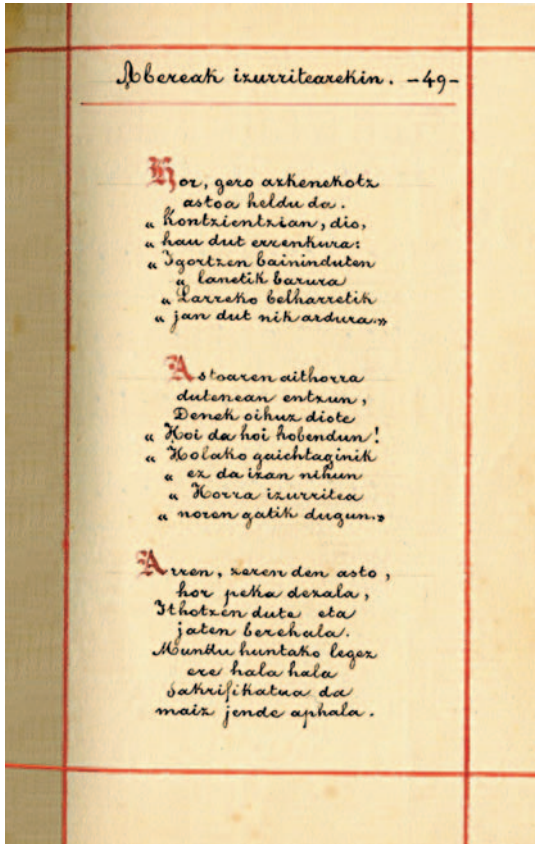 Abereak izurritearekin. -49-
Hor, gero azkenekotz
astoa heldu da.
" Kontzientzian, dio,
" hau dut errenkura:
" Igortzen baininduten
" lanetik barura
" Larreko belharretik
" jan dut nik ardura.»
Astoaren aithorra
dutenean entzun,
Denek oihuz diote
" Hoi da hoi hobendun!
" Holako gaichtaginik
" ez da izan nihun
" Horra izurritea
" noren gatik dugun.»
Arren, zeren den asto,
hor peka dezala,
Ithotzen dute eta
jaten berehala.
Mundu huntako legez
ere hala hala
sakrifikatua da
maiz jende aphala.